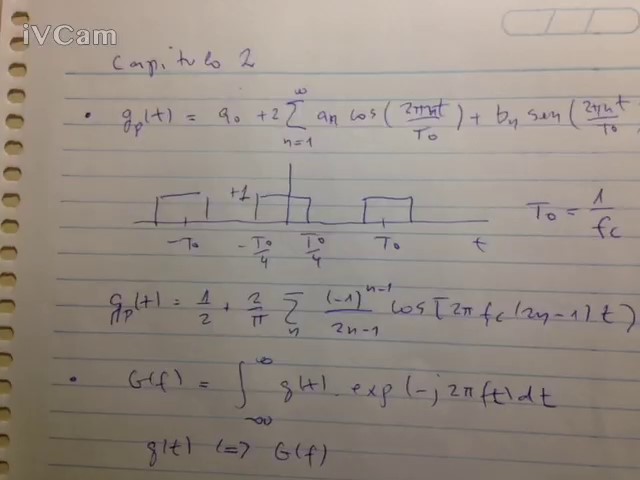 iVCam
Capitulo 2
• gp(t) = a0 + 2 ∑_{n=1}^{∞} an cos(2πnt/T0) + bn sen(2πnt/T0
+1
-T0 -T0/4 T0/4 T0 t
T0 = 1/fc
gp(t) = 1/2 + 2/π ∑_n (-1)^{n-1}/(2n-1) cos[2π fc (2n-1) t)
• G(f) = ∫_{-∞}^{∞} g(t) . exp(-j 2π ft) dt
g(t) <=> G(f)